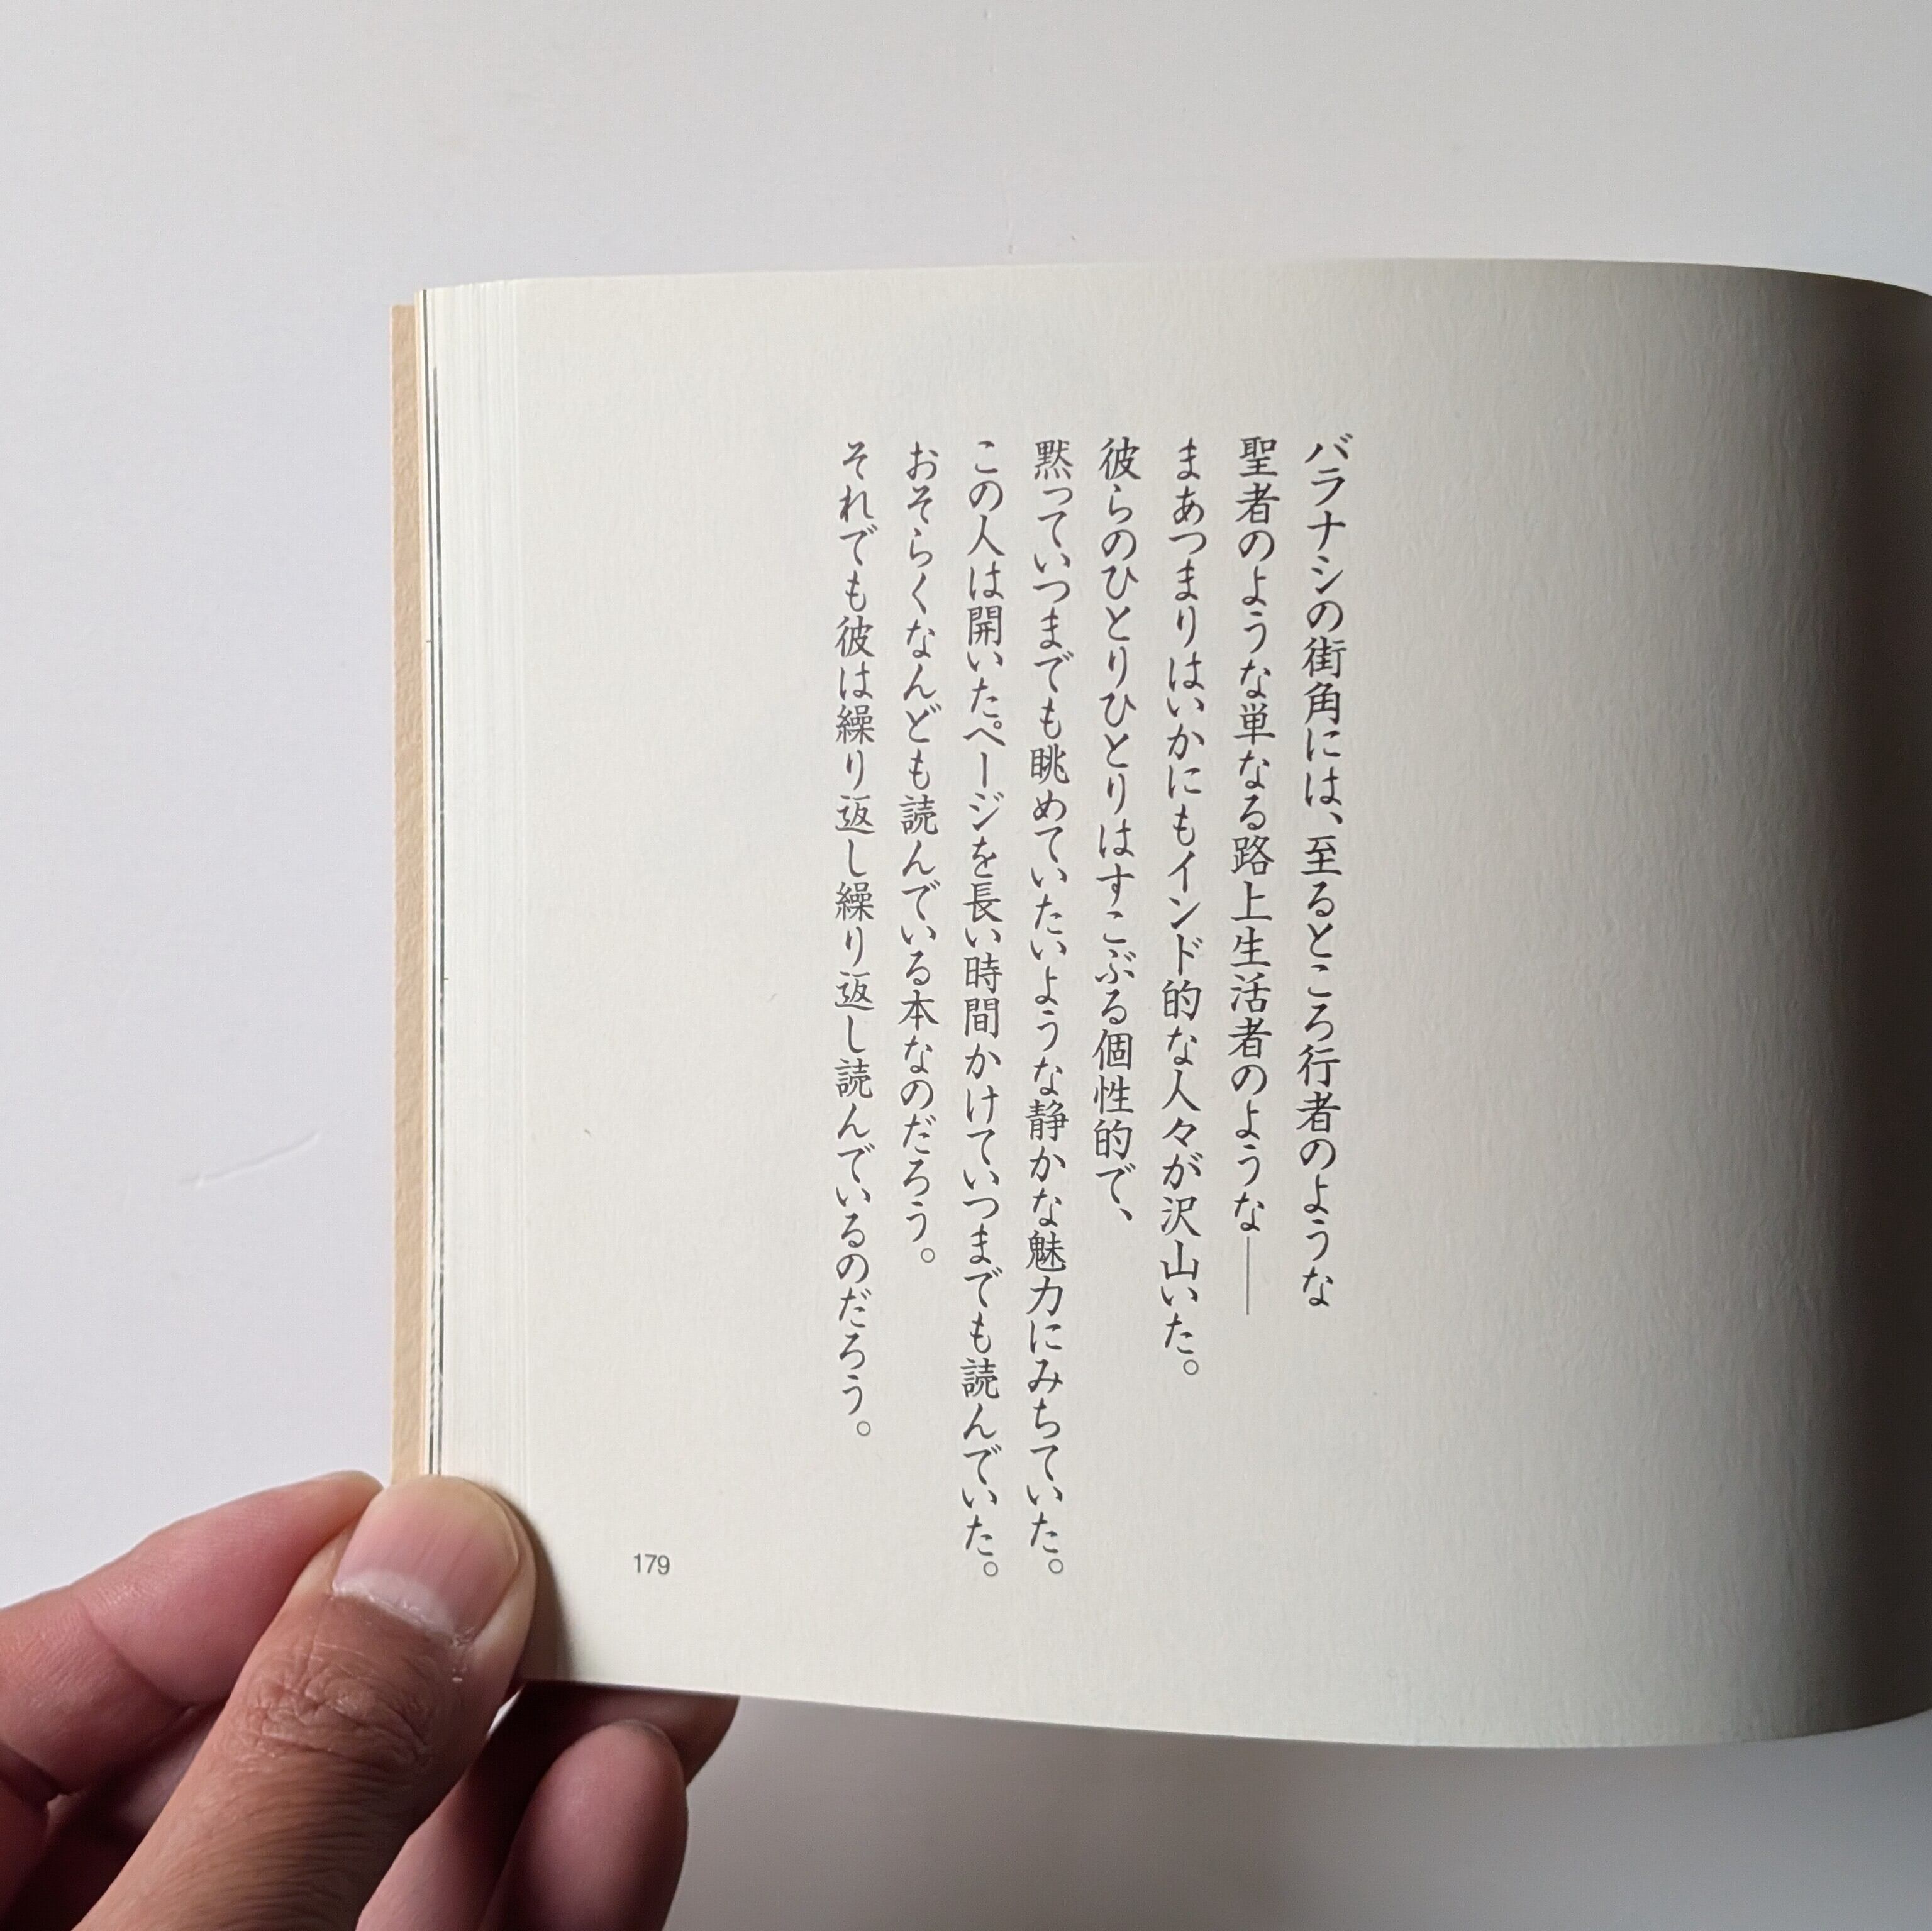 バラナシの街角には、至るところ行者のような
聖者のような単なる路上生活者のような――
まあつまりはいかにもインド的な人々が沢山いた。
彼らのひとりひとりはすこぶる個性的で、
黙っていつまでも眺めていたいような静かな魅力にみちていた。
この人は開いたページを長い時間かけていつまでも読んでいた。
おそらくなんども読んでいる本なのだろう。
それでも彼は繰り返し繰り返し読んでいるのだろう。
179